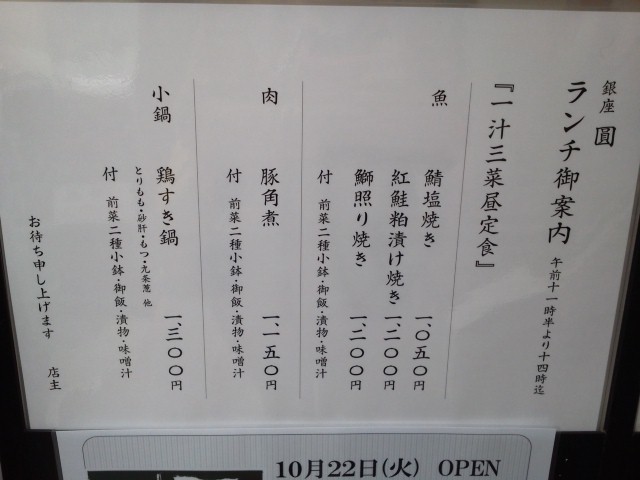 銀座 圓
ランチ御案内 午前十一時半より十四時迄
『一汁三菜昼定食』
魚
鯖塩焼き 一、〇五〇円
紅鮭粕漬け焼き 一、二〇〇円
鰤照り焼き 一、二〇〇円
付 前菜二種小鉢・御飯・漬物・味噌汁
肉
豚角煮 一、一五〇円
付 前菜二種小鉢・御飯・漬物・味噌汁
小鍋
鶏すき鍋 一、三〇〇円
とりもも・砂肝・もつ・九条葱 他
付 前菜二種小鉢・御飯・漬物・味噌汁
お待ち申し上げます 店主
10月22日(火) OPEN